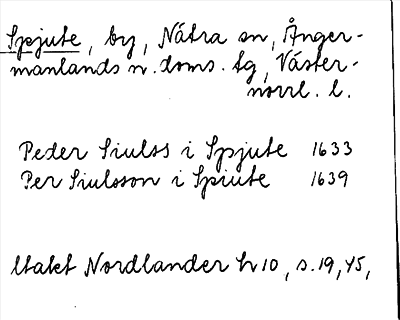 Spjute, by, Nätra sn, Ånger-
manlands n. doms. tg, Väster-
norrl. l.
Peder Siulss i Spjute 1633
Per Siulsson i Spiute 1639
Utakt Nordlander h 10, s. 19, 45,